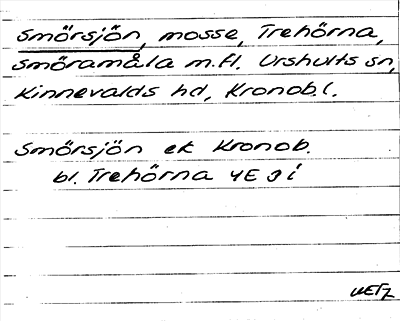 Smörsjön, mosse, Trehörna,
Smöramåla m.fl. Urshults sn,
Kinnevalds hd, Kronob.l.
Smörsjön ek Kronob.
bl. Trehörna 4E 9i